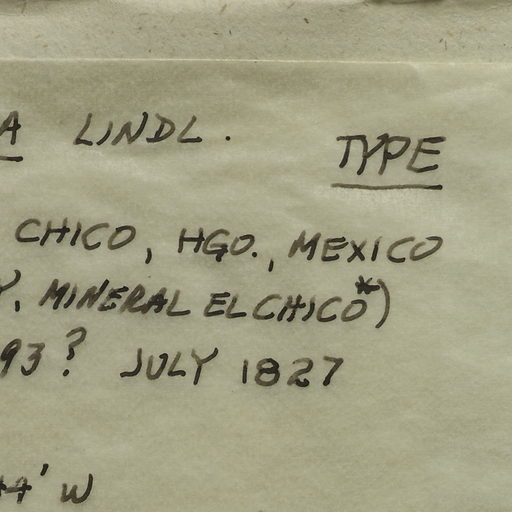 A LINDL.
TYPE
CHICO, HGO., MEXICO
Y, MINERAL EL CHICO*)
93? JULY 1827
44' W